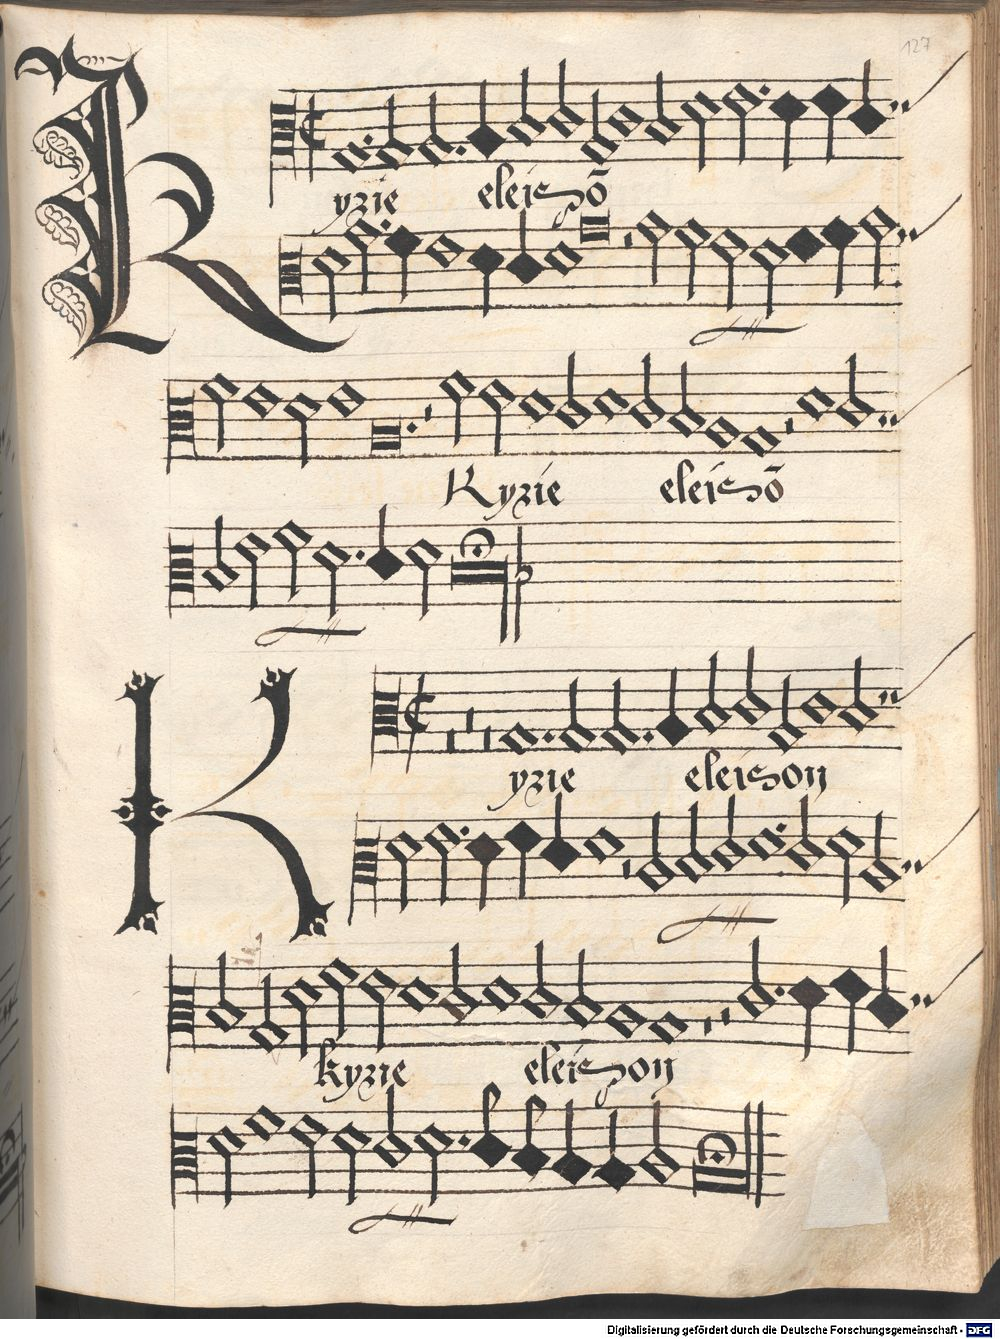 127
Kyrie eleisō
Kyrie eleisō
Kyrie eleison
kyrie eleison
Digitalisierung gefördert durch die Deutsche Forschungsgemeinschaft - DFG